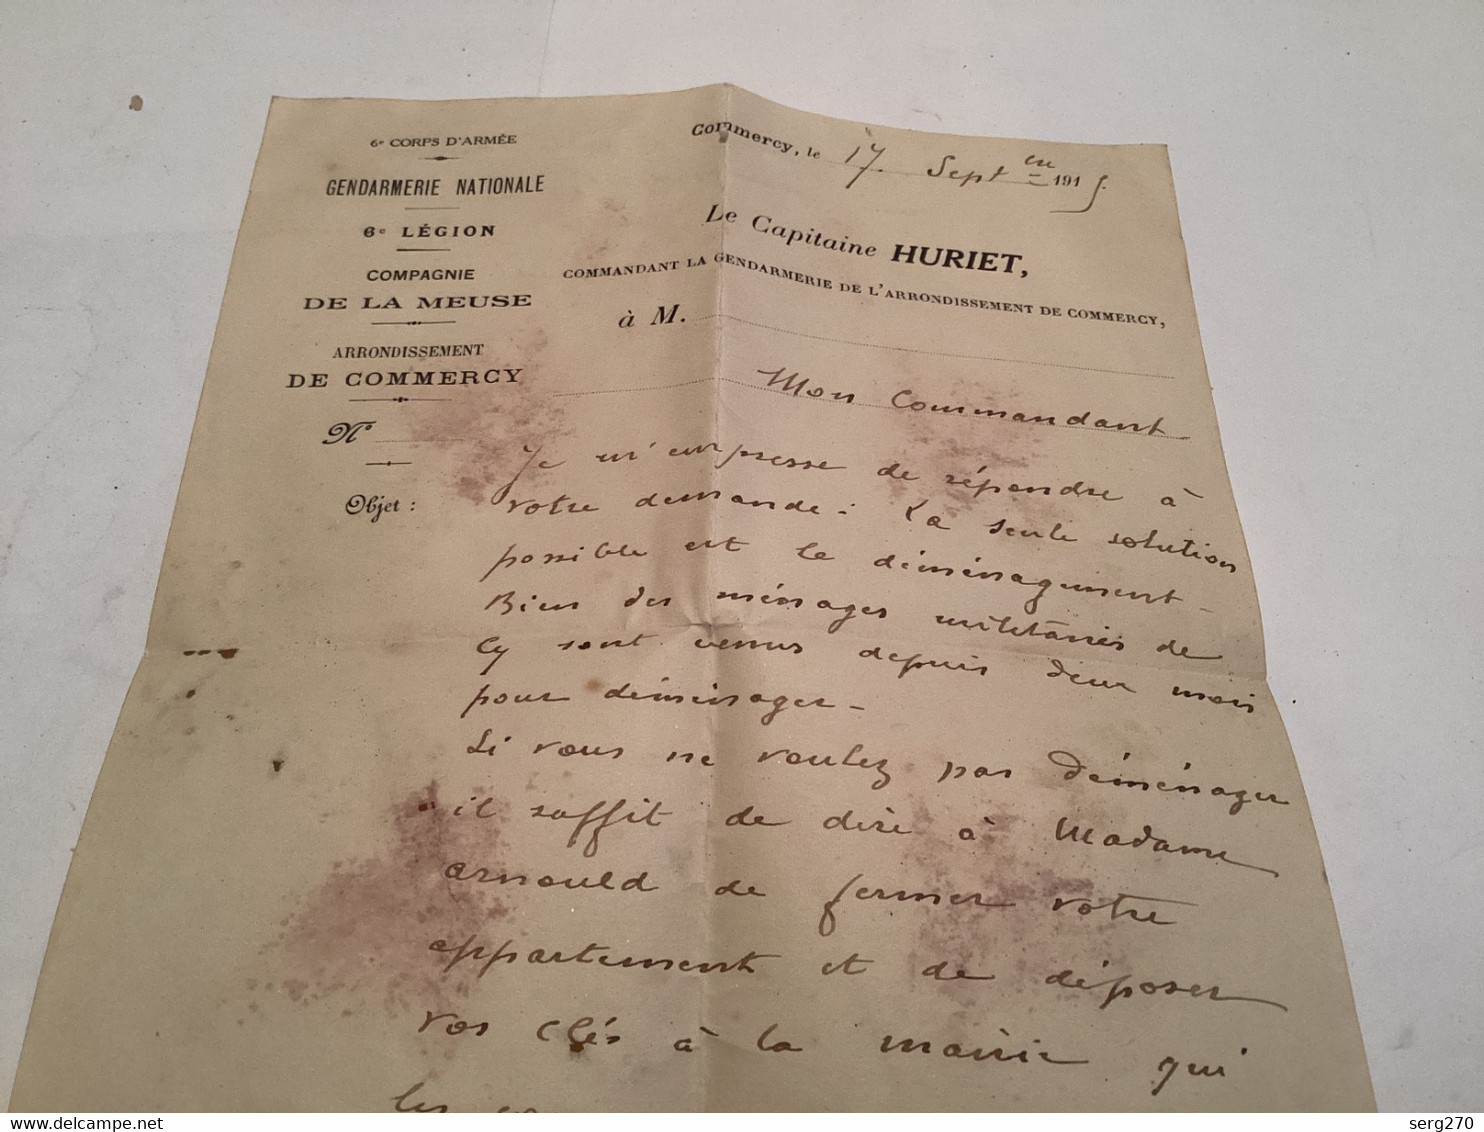 6e CORPS D'ARMÉE
GENDARMERIE NATIONALE
6e LÉGION
COMPAGNIE
DE LA MEUSE
ARRONDISSEMENT
DE COMMERCY
No
Objet :
Commercy, le 17 Septembre 1915
Le Capitaine HURIET,
COMMANDANT LA GENDARMERIE DE L'ARRONDISSEMENT DE COMMERCY,
à M.
Mon Commandant
Je m'empresse de répondre à
votre demande : La seule solution
possible est le déménagement -
Bien des ménages militaires de
Cy sont venus depuis deux mois
pour déménager -
Si vous ne voulez pas déménager
il suffit de dire à Madame
Arnould de fermer votre
appartement et de déposer
vos clés à la mairie qui
les
delcampe.net
serg270